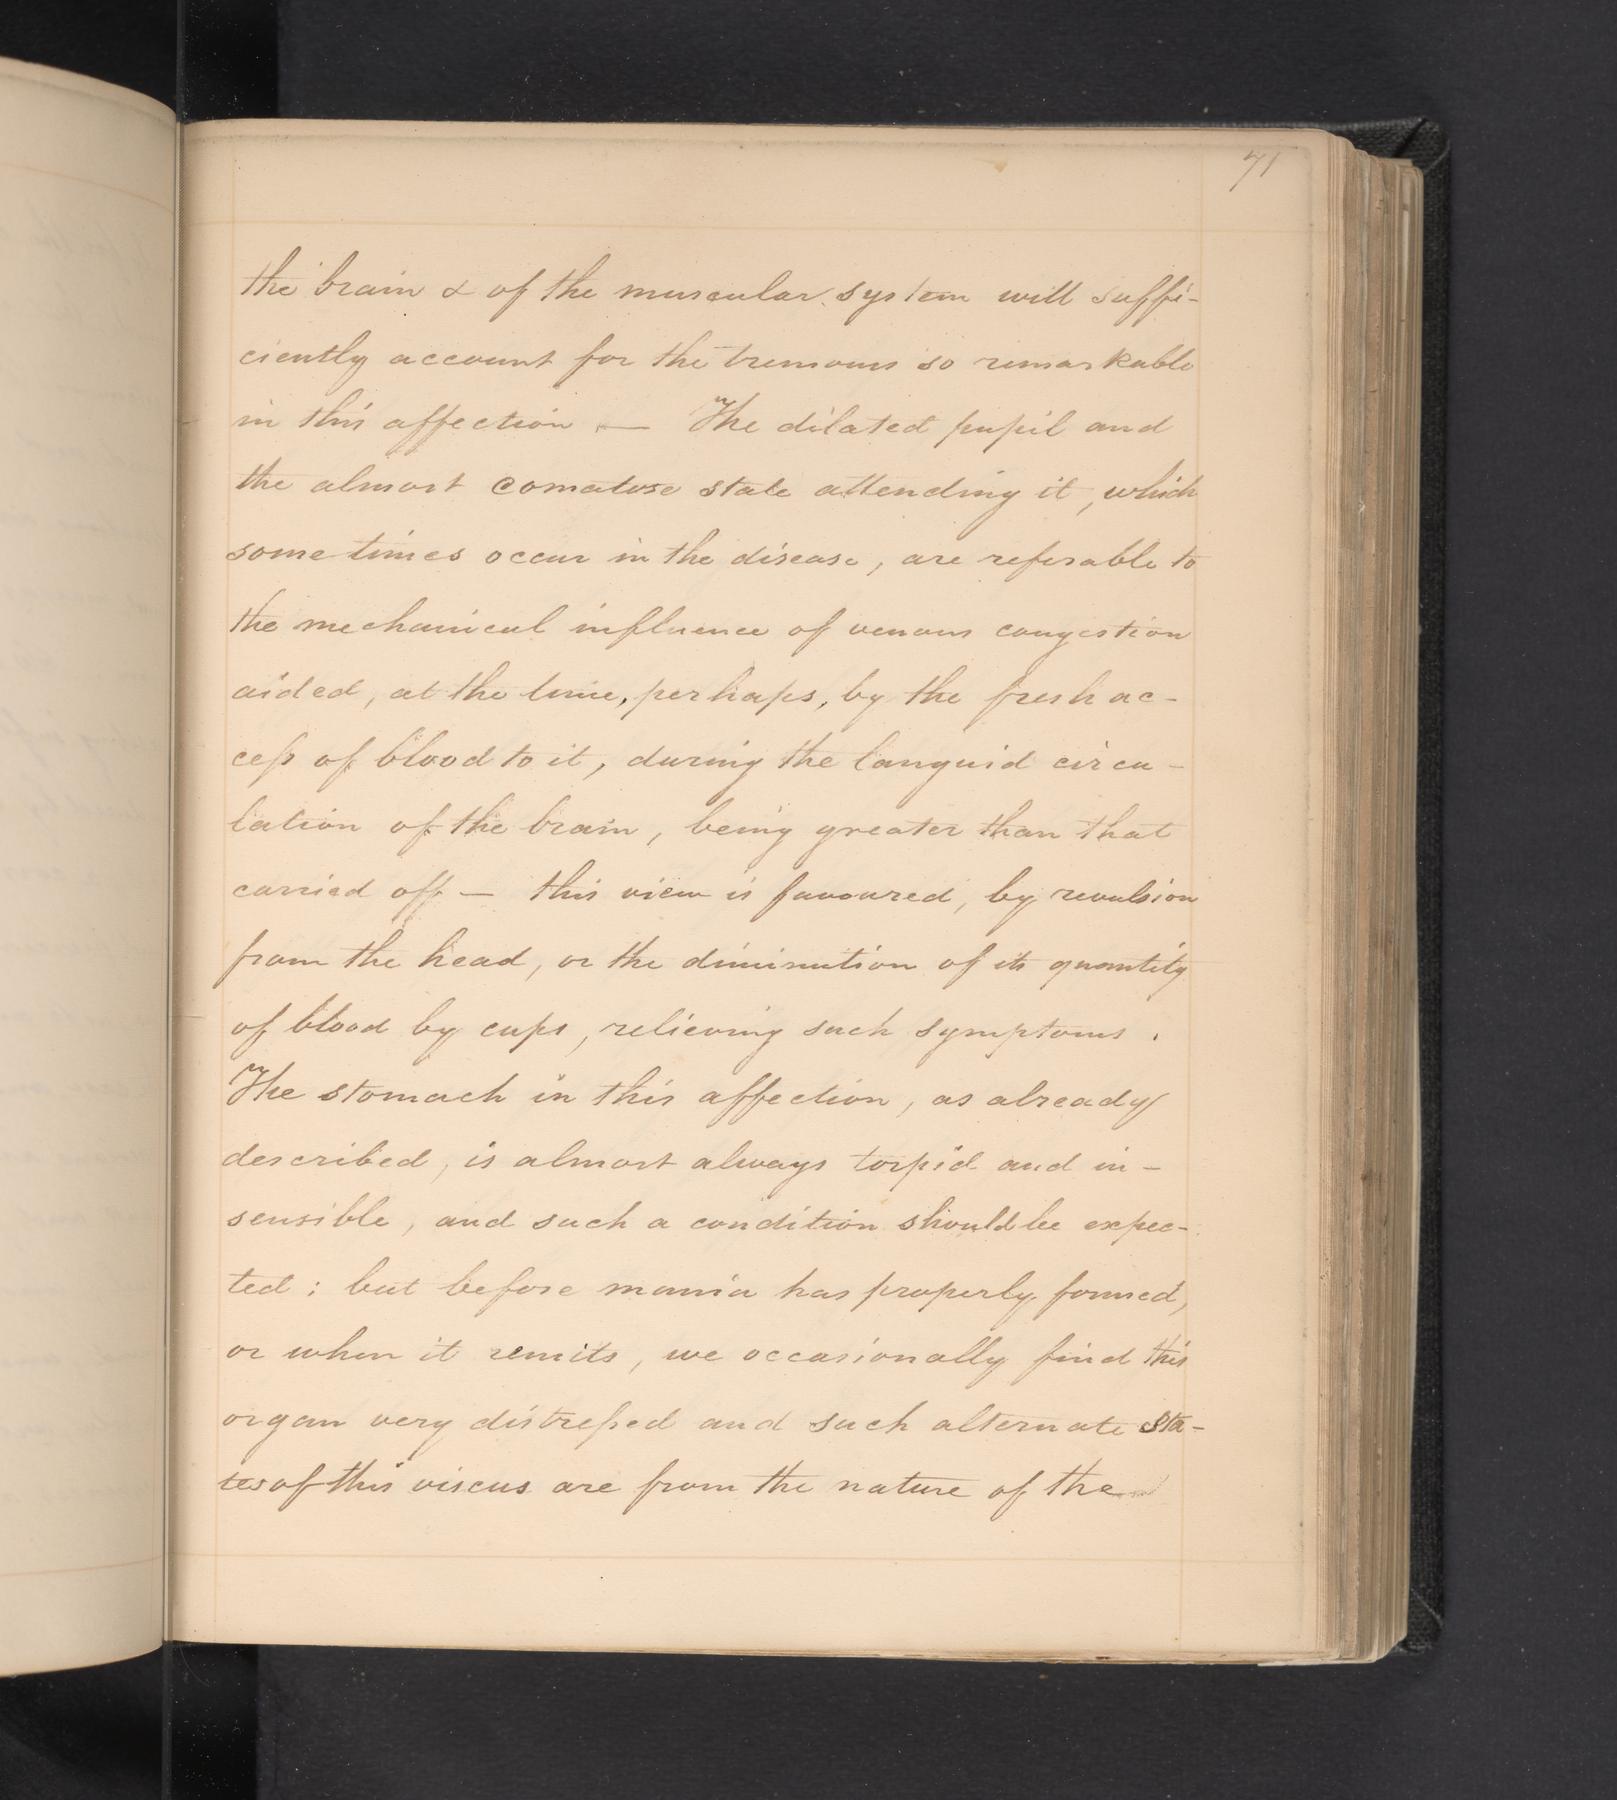 71
the brain & of the muscular system will suffi-
ciently account for the tremours so remarkable
in this affection — The dilated pupil and
the almost comatose state attending it, which
sometimes occur in the disease, are referable to
the mechanical influence of venous congestion
aided, at the time, perhaps, by the fresh ac-
cess of blood to it, during the languid circu-
lation of the brain, being greater than that
carried off — this view is favoured, by revulsion
from the head, or the diminution of its quantity
of blood by cups, relieving such symptoms.
The stomach in this affection, as already
described, is almost always torpid and in-
sensible, and such a condition should be expec-
ted; but before mania has properly formed,
or when it remits, we occasionally find this
organ very distressed and such alternate sta-
tes of this viscus are from the nature of the